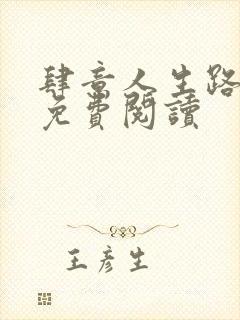 肆意人生路
免費閱讀
王彥生